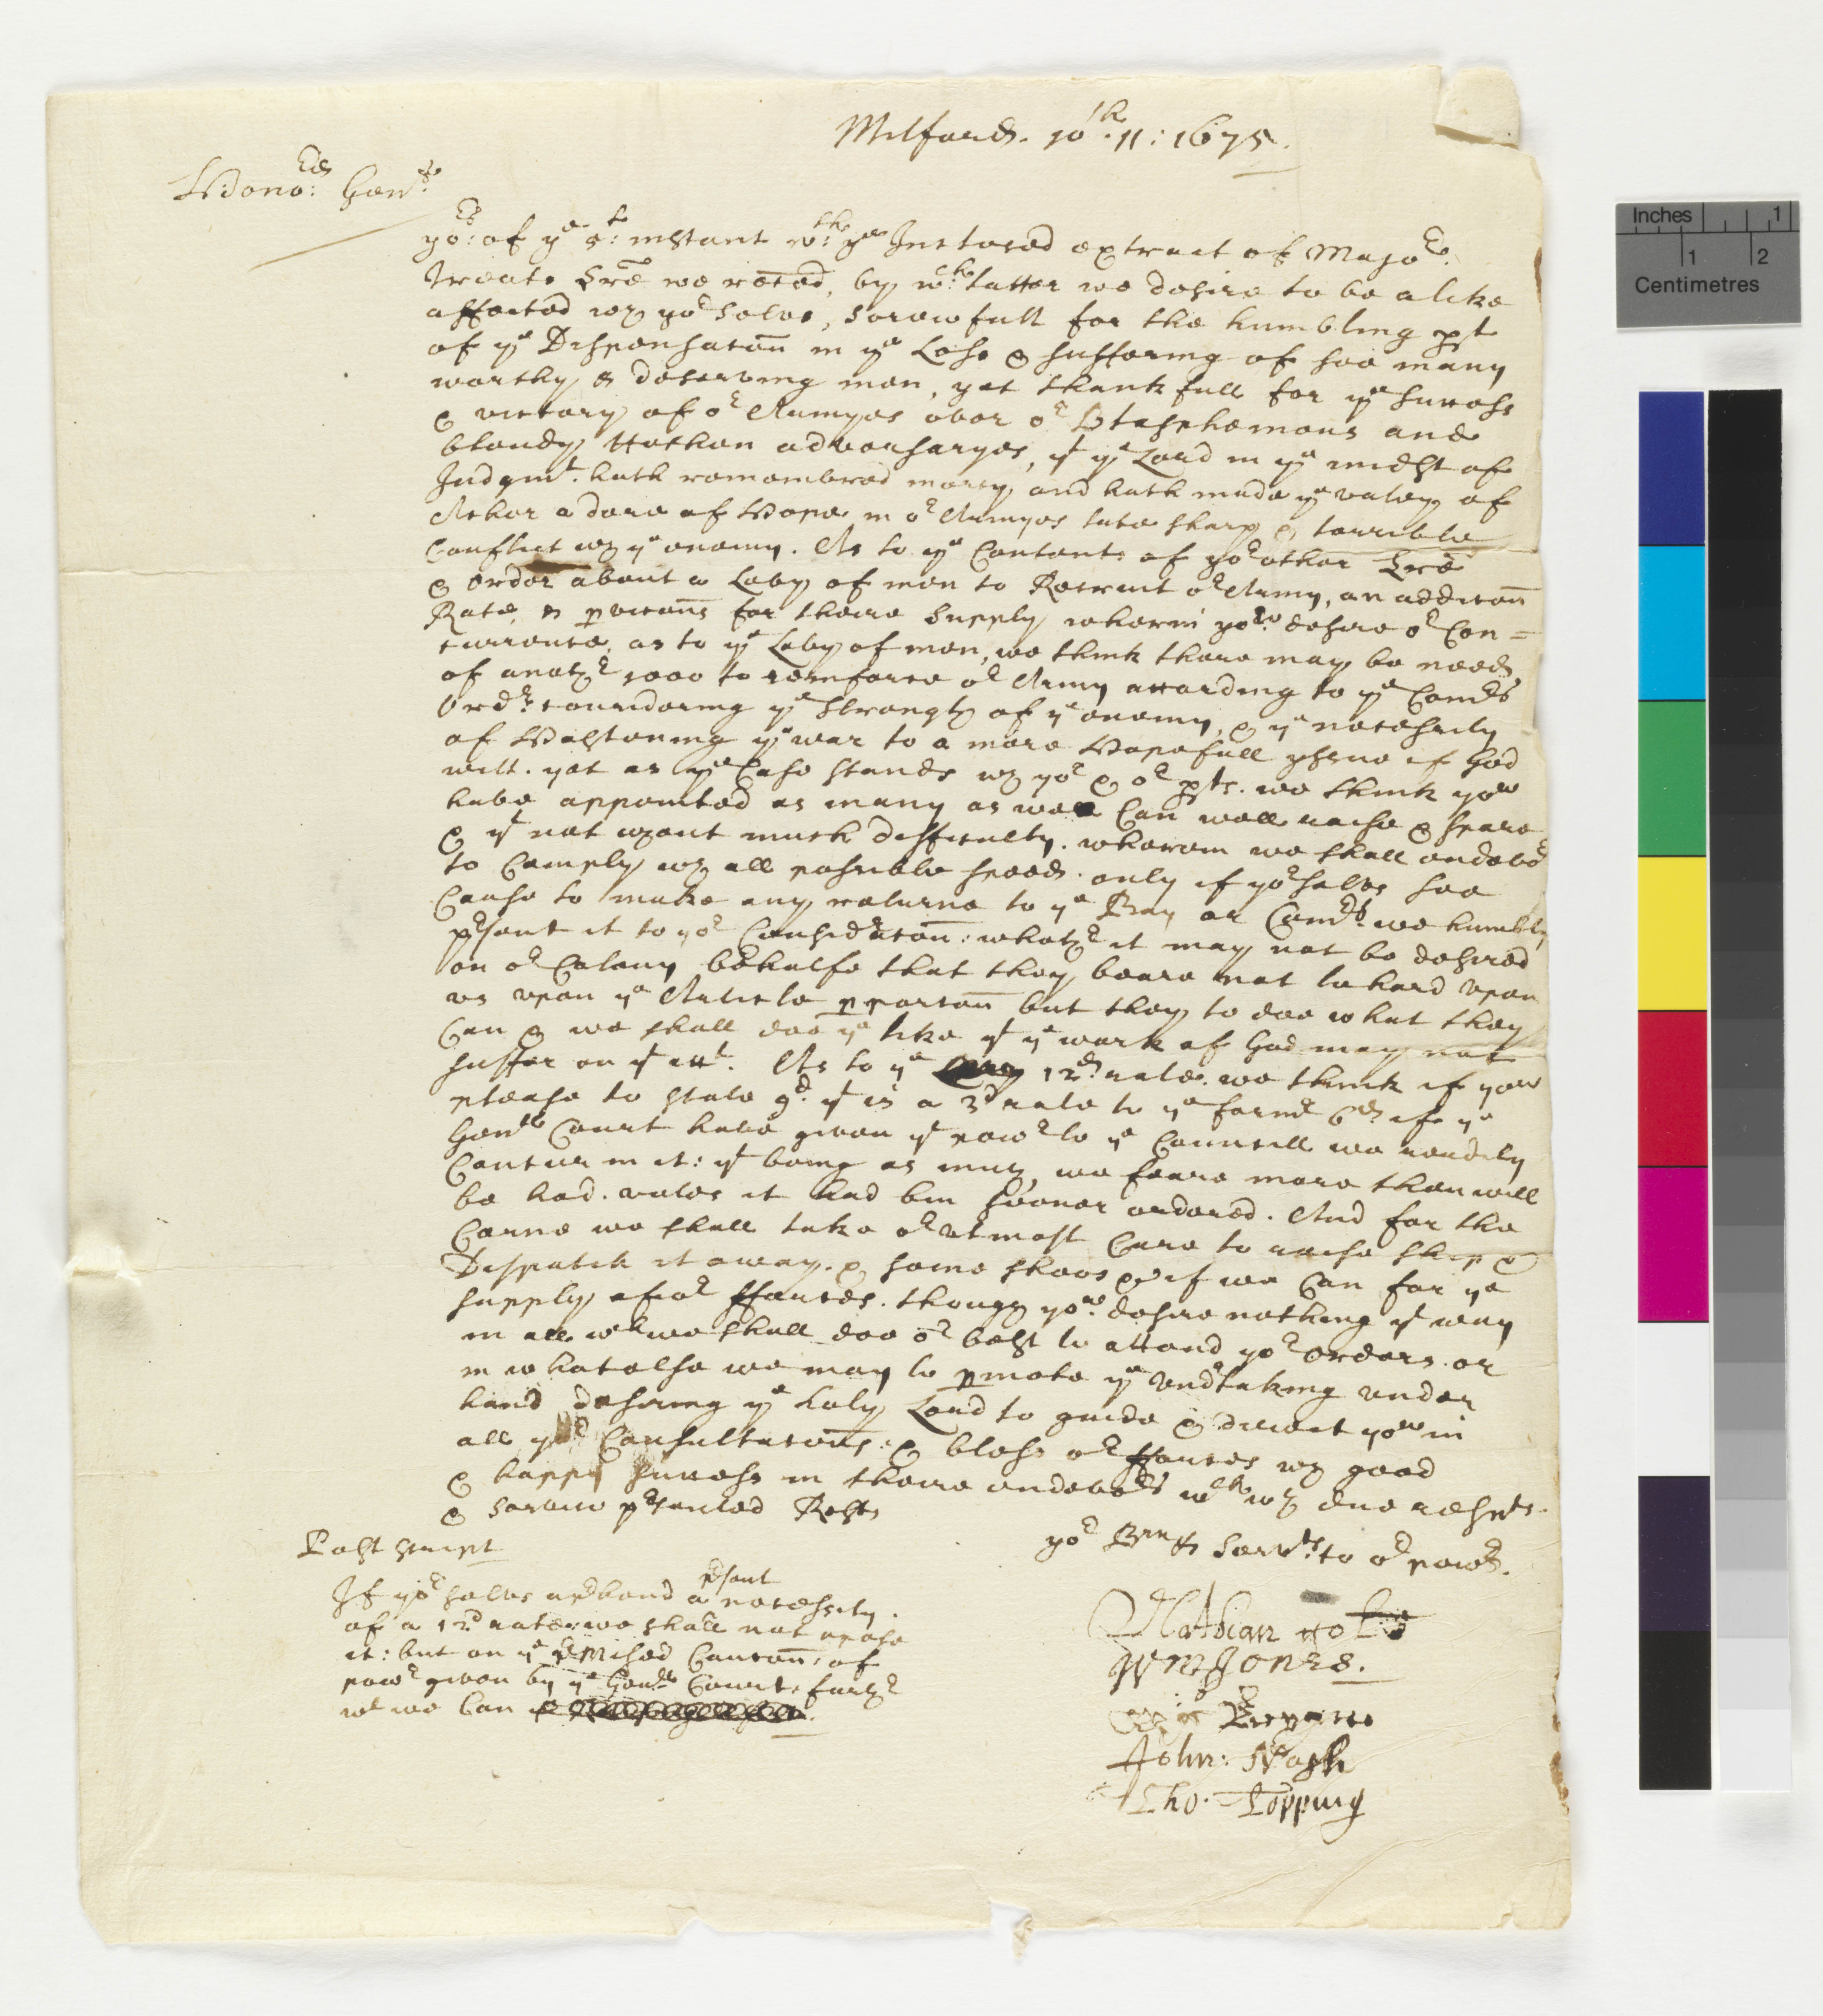 Milford. 10th. 11: 1675.
Honord: Gentl:
yors: of ye 5t: instant wth: ye Inclosed extract of Majors:
Treats Lre we reced, by wch: latter we desire to be alike
affected wth yor selves, sorowfull for the humbling pt
of ye Dispensation in ye Loss & suffering of soe many
worthy & deserving men, yet thankfull for ye success
& victory of or Armyes over or Blasphemous and
bloudy Heathen adversaryes, yt ye Lord in ye midst of
Judgmt. hath remembred mercy, and hath made ye valey of
Achor a dore of Hope in or Armyes late sharp & terrible
Conflict wth ye enemy. As to ye Contents of yor other Lre
& order about a Levy of men to Recruit or Army, an addicon
Rate, & pvicons for theire supply wherin you desire or Con=
currence, as to ye Levy of men, we think there may be need
of anothr 1000 to reenforce or Army according to ye Comrs
Ordr: considering ye strength of ye enemy, & ye necessity
of Hastening ye war to a more Hopefull yssue if God
will. yet as ye Case stands wth yor & or pts. we think you
have appointed as many as wee Can well raise & spare
& yt not wthout much difficulty. wherein we shall endevor
to Comply wth all possible speed. only if yor selves see
Cause to make any returne to ye Bay or Comrs: we humbly
prsent it to yor Considracon: whethr it may not be desired
on or Colony behalfe that they beare not to hard upon
us upon ye Article pporcon but they to doe what they
Can & we shall doe ye like yt ye work of God may not
suffer on yt acct. As to ye 12d: rate. we think if you
please to state yt is a 3d rate to ye formr if ye
Genll Court have given yt powr to ye Councill we readily
Concur in it: yt being as much, we feare more then will
be had. unles it had bin sooner ordered. And for the
Corne we shall take or utmost Care to raise ship &
Dispatch it away. & some shoos if we Can for ye
supply of or fforces. though you desire nothing yt way
in all wch we shall doe or best to attend yor orders. or
in what else we may to pmote ye undrtaking under
hand desiring ye holy Lord to guide & direct you in
all yor Consultacons: & bless or fforces wth good
& happy success in theire endevors wch wth due respts.
& servic prsented Rests
yor Brn & Servts: to or powr.
Post script
If yor selves aprhend a prsent necessity
of a 12d rate: we shall not opose
it: but on ye prmised Caucon, of
powr given by ye Genll Court. furthr
wt we Can
Nathan gold
Wm Jones.
John: Nash
Tho. Topping
Inches 1
1 2
Centimetres